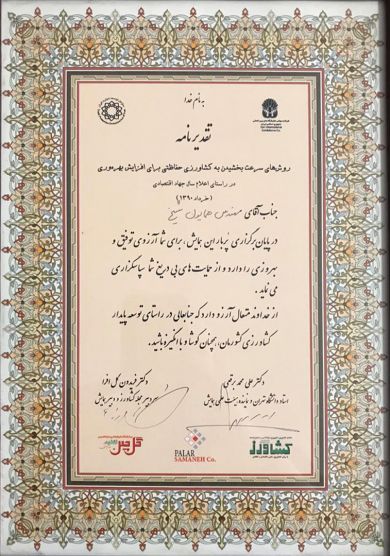 به نام خدا
تقدیرنامه
روش‌های سرعت بخشیدن به کشاورزی حفاظتی برای افزایش بهره‌وری
در راستای اعلام سال جهاد اقتصادی
(خرداد ۱۳۹۰)
جناب آقای مهندس همایون
در پایان برگزاری پربار این همایش، برای شما آرزوی توفیق و
بهروزی را دارد و از حمایت‌های بی دریغ شما سپاسگزاری
می نماید.
از خداوند متعال آرزو دارد که جنابعالی در راستای توسعه پایدار
کشاورزی کشورمان، همچنان کوشا و با انگیزه باشید.
دکتر علی محمد برقعی
استاد دانشگاه تهران و نماینده هیئت علمی همایش
دکتر فریدون گل افرا
سردبیر مجله کشاورز و دبیر همایش
کشاورز
PALAR
SAMANEH Co.
گل چین